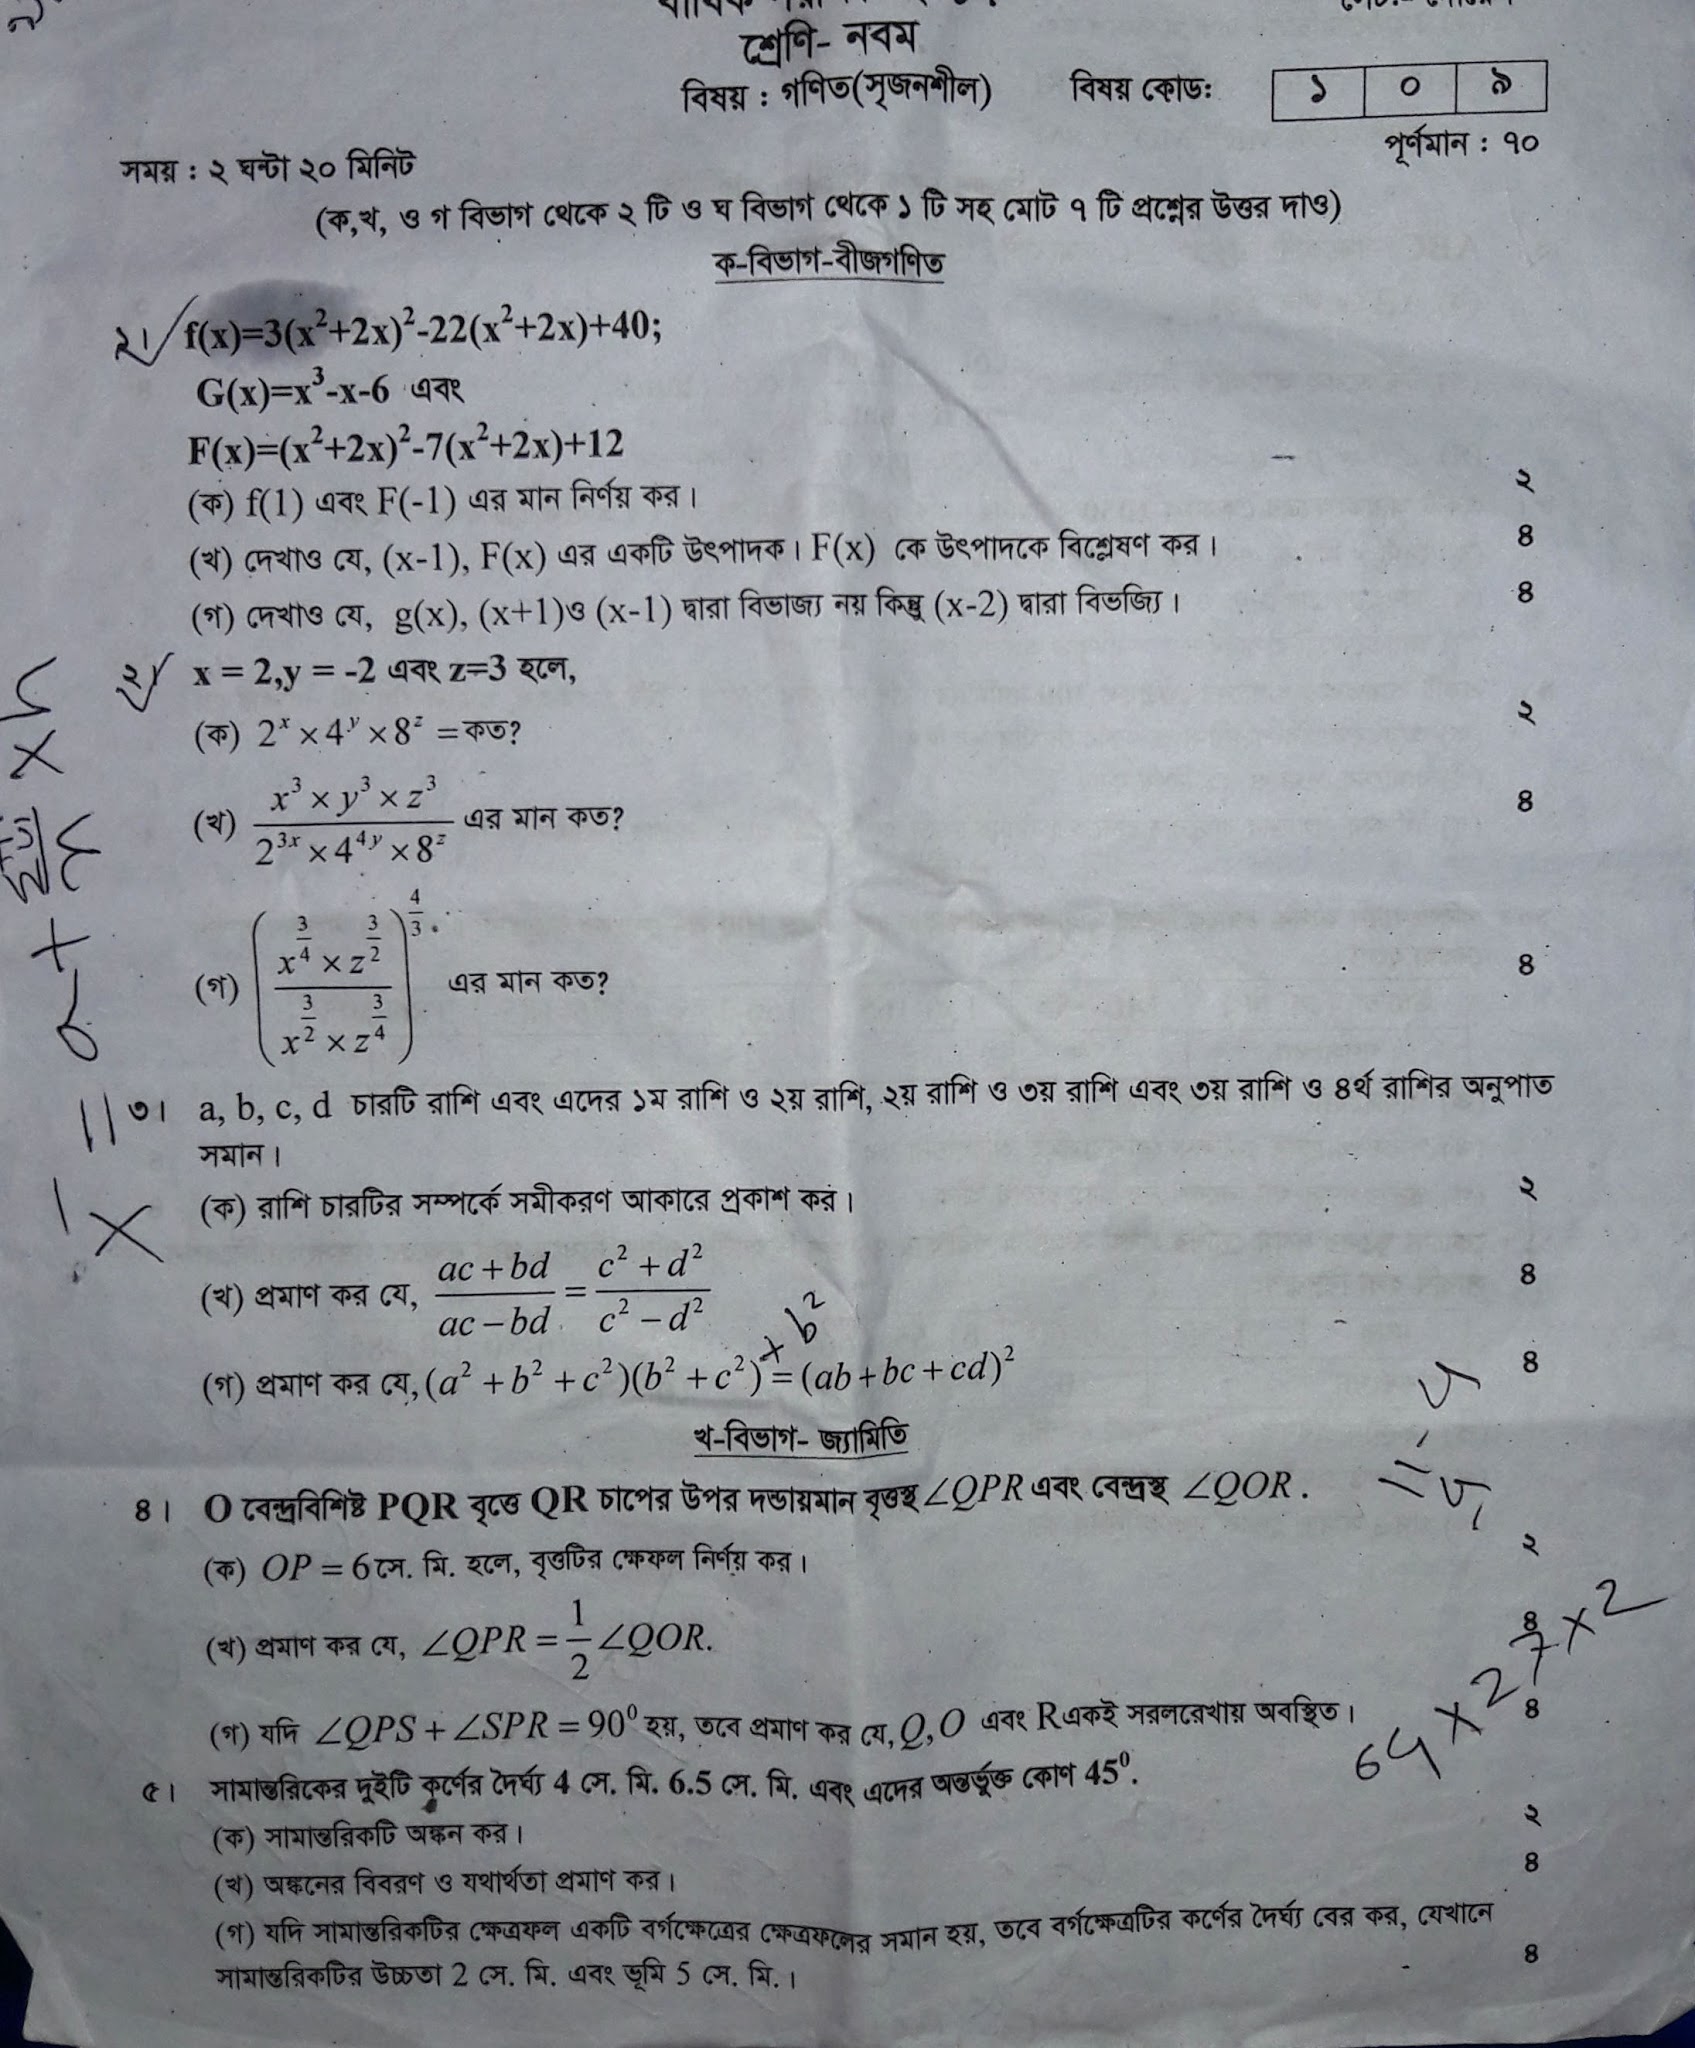 শ্রেণি- নবম
বিষয় : গণিত(সৃজনশীল) বিষয় কোডঃ ১ ০ ৯
পূর্ণমান : ৭০
সময় : ২ ঘন্টা ২০ মিনিট
(ক,খ, ও গ বিভাগ থেকে ২ টি ও ঘ বিভাগ থেকে ১ টি সহ মোট ৭ টি প্রশ্নের উত্তর দাও)
ক-বিভাগ-বীজগণিত
f(x)=3(x²+2x)²-22(x²+2x)+40;
G(x)=x³-x-6 এবং
F(x)=(x²+2x)²-7(x²+2x)+12
(ক) f(1) এবং F(-1) এর মান নির্ণয় কর। ২
(খ) দেখাও যে, (x-1), F(x) এর একটি উৎপাদক। F(x) কে উৎপাদকে বিশ্লেষণ কর। ৪
(গ) দেখাও যে, g(x), (x+1)ও (x-1) দ্বারা বিভাজ্য নয় কিন্তু (x-2) দ্বারা বিভজ্যি। ৪
২। x = 2,y = -2 এবং z=3 হলে,
(ক) 2^x × 4^y × 8^z = কত? ২
(খ) (x³ × y³ × z³)/(2^{3x} × 4^{4y} × 8^z) এর মান কত? ৪
(গ) ((x^{3/4} × z^{3/2})/(x^{3/2} × z^{3/4}))^{4/3} এর মান কত? ৪
৩। a, b, c, d চারটি রাশি এবং এদের ১ম রাশি ও ২য় রাশি, ২য় রাশি ও ৩য় রাশি এবং ৩য় রাশি ও ৪র্থ রাশির অনুপাত
সমান।
(ক) রাশি চারটির সম্পর্কে সমীকরণ আকারে প্রকাশ কর। ২
(খ) প্রমাণ কর যে, (ac + bd)/(ac − bd) = (c² + d²)/(c² − d²) ৪
+ b²
(গ) প্রমাণ কর যে, (a² + b² + c²)(b² + c²) = (ab + bc + cd)² ৪
খ-বিভাগ- জ্যামিতি
৪। O বেন্দ্রবিশিষ্ট PQR বৃত্তে QR চাপের উপর দন্ডায়মান বৃত্তস্থ ∠QPR এবং বেন্দ্রস্থ ∠QOR.
(ক) OP = 6 সে. মি. হলে, বৃত্তটির ক্ষেফল নির্ণয় কর। ২
(খ) প্রমাণ কর যে, ∠QPR = 1/2 ∠QOR. ৪
(গ) যদি ∠QPS + ∠SPR = 90⁰ হয়, তবে প্রমাণ কর যে, Q, O এবং R একই সরলরেখায় অবস্থিত। ৪
64 × 27 × 2
৫। সামান্তরিকের দুইটি কর্ণের দৈর্ঘ্য 4 সে. মি. 6.5 সে. মি. এবং এদের অন্তর্ভূক্ত কোণ 45⁰.
(ক) সামান্তরিকটি অঙ্কন কর। ২
(খ) অঙ্কনের বিবরণ ও যথার্থতা প্রমাণ কর। ৪
(গ) যদি সামান্তরিকটির ক্ষেত্রফল একটি বর্গক্ষেত্রের ক্ষেত্রফলের সমান হয়, তবে বর্গক্ষেত্রটির কর্ণের দৈর্ঘ্য বের কর, যেখানে
সামান্তরিকটির উচ্চতা 2 সে. মি. এবং ভূমি 5 সে. মি.। ৪